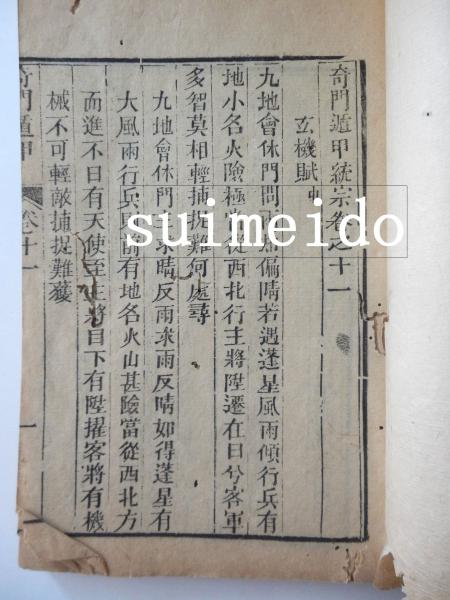 奇門遁甲統宗卷之十一
玄機賦
九地會休門問雨偏晴若遇蓬星風雨傾行兵有
地小名火險極從西北行主將陞遷在日兮客軍
多智莫相輕捕捉難何處尋
九地會休門求晴反雨求雨反晴如得蓬星有
大風雨行兵前有地名火山甚險當從西北方
而進不日有天使至主將目下有陞擢客將有機
械不可輕敵捕捉難獲
奇門遁甲
卷十一
一
suimeido